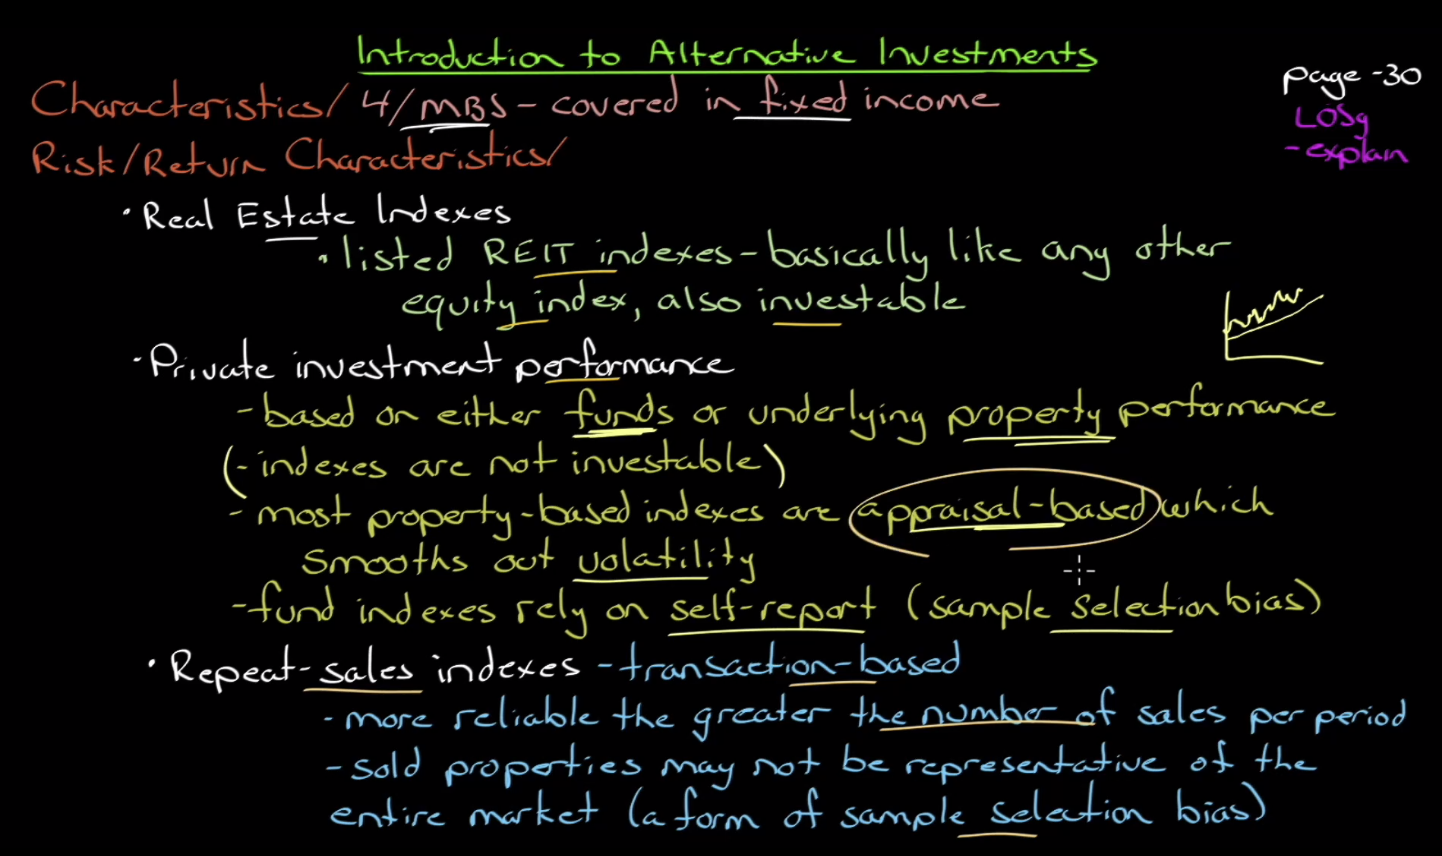 Introduction to Alternative Investments
page -30
LOSg
- explain
Characteristics/ 4/MBS - covered in fixed income
Risk/Return Characteristics/
· Real Estate Indexes
· listed REIT indexes - basically like any other
equity index, also investable
· Private investment performance
- based on either funds or underlying property performance
(- indexes are not investable)
- most property-based indexes are appraisal-based which
smooths out volatility
- fund indexes rely on self-report (sample selection bias)
· Repeat-sales indexes - transaction-based
- more reliable the greater the number of sales per period
- sold properties may not be representative of the
entire market (a form of sample selection bias)